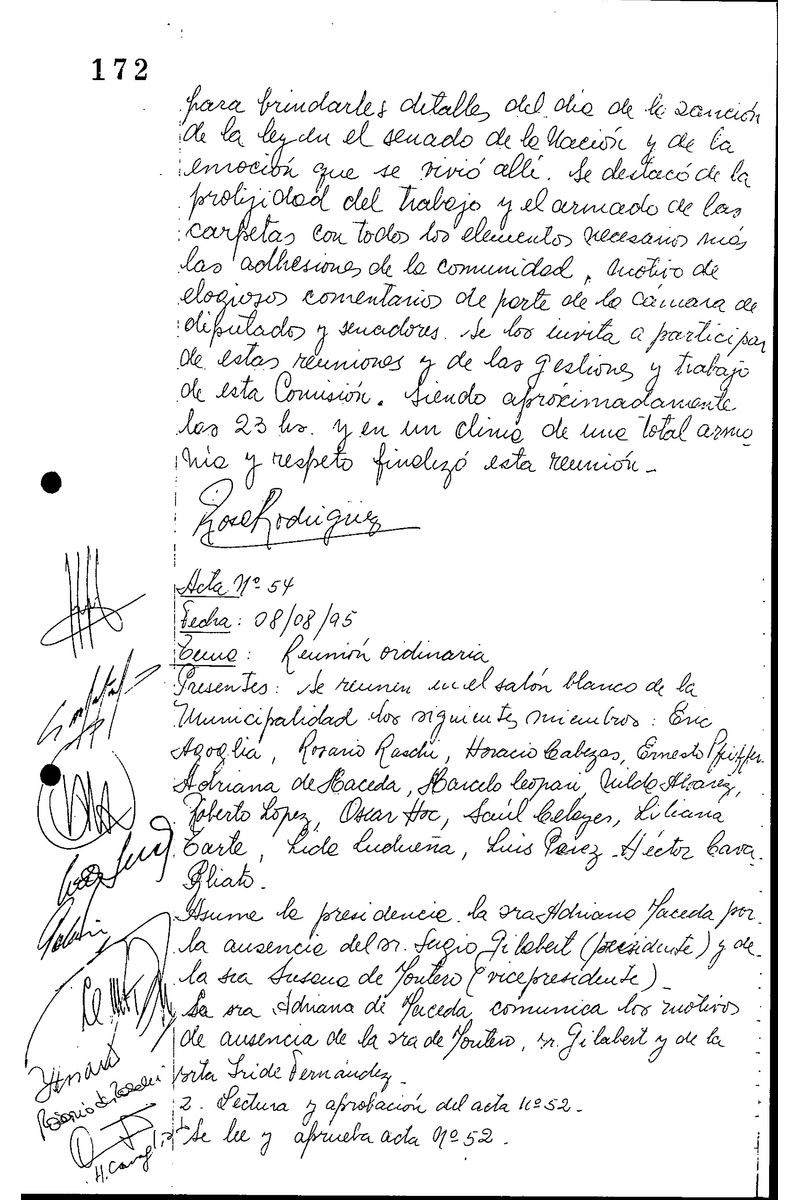 172
para brindarles detalles del día de la sanción
de la ley en el senado de la Nación y de la
emoción que se vivió allí. Se destacó de la
prolijidad del trabajo y el armado de las
carpetas con todos los elementos necesarios más
las adhesiones de la comunidad, motivo de
elogiosos comentarios de parte de la cámara de
diputados y senadores. Se los invita a participar
de estas reuniones y de las gestiones y trabajo
de esta Comisión. Siendo aproximadamente
las 23 hs. y en un clima de una total armo
nía y respeto finalizó esta reunión_
Rosa Rodriguez
Acta Nº 54
Fecha: 08/08/95
Tema: Reunión ordinaria
Presentes: se reunen en el salón blanco de la
Municipalidad los siguientes miembros: Eric
Agoglia, Rosario Raschi, Horacio Cabezas, Ernesto Pfiffer.
Adriana de Maceda, Marcelo Leopari, Nilda Alvarez,
Roberto López, Oscar Hoc, Saúl Celayes, Liliana
Tarte, Lida Ludueña, Luis Perez. Héctor Cava.
gliato.
Asume la presidencia la sra Adriana Maceda por
la ausencia del sr. Sergio Gilabert (presidente) y de
la sra Susana de Montero (vicepresidente)_
La sra Adriana de Maceda comunica los motivos
de ausencia de la sra de Montero, sr. Gilabert y de la
srta Iride Fernández_
2. Lectura y aprobación del acta nº 52_
Se lee y aprueba acta Nº 52.
Rosario de Raschi
H. Cavagliato